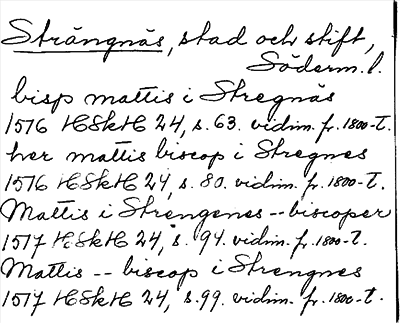 Strängnäs, stad och stift,
Söderm. l.
bisp mattis i Stregnäs
1576 HSkH 24, s. 63. vidim. fr. 1800-t.
her mattis biscop i Stregnes
1576 HSkH 24, s. 80. vidim. fr. 1800-t.
Mattis i Strengenes -- biscoper
1577 HSkH 24, s. 94. vidim. fr. 1800-t.
Mattis -- biscop i Strengnes
1577 HSkH 24, s. 99. vidim. fr. 1800-t.